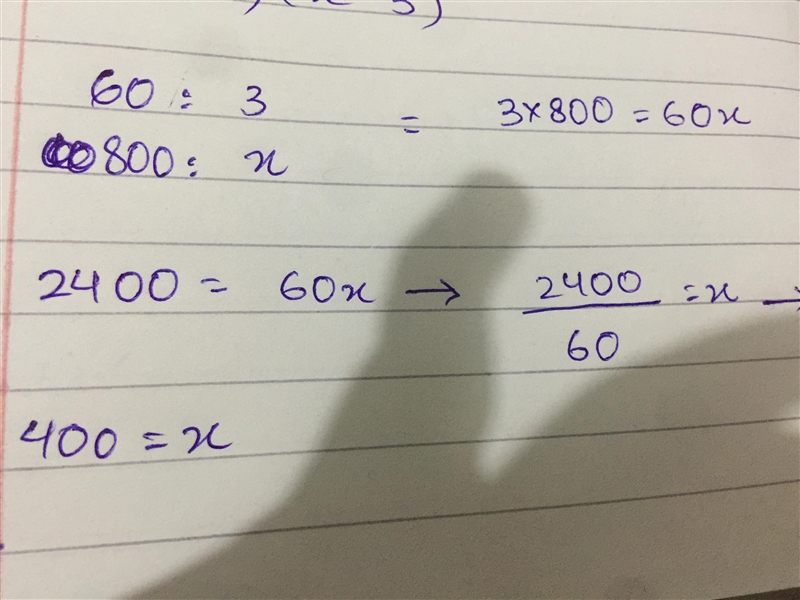 60 : 3 = 3×800 = 60x
800 : x
2400 = 60x → 2400/60 = x →
400 = x